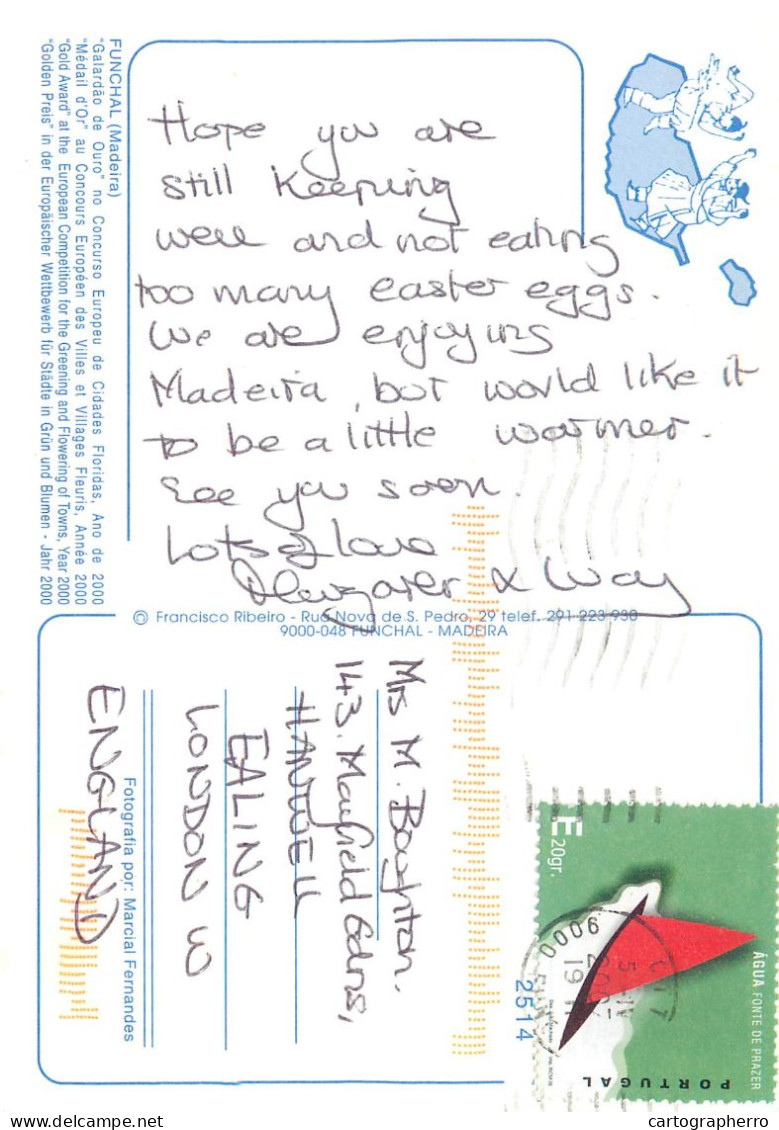 FUNCHAL (Madeira)
"Galardão de Ouro" no Concurso Europeu de Cidades Floridas, Ano de 2000
"Médail d'Or" au Concours Européen des Villes et Villages Fleuris, Année 2000
"Gold Award" at the European Competition for the Greening and Flowering of Towns, Year 2000
"Golden Preis" in der Europäischer Wettbewerb für Städte in Grün und Blumen - Jahr 2000
Hope you are
still keeping
well and not eating
too many easter eggs.
We are enjoying
Madeira, but would like it
to be a little warmer.
See you soon.
Lots of love
Margaret x
© Francisco Ribeiro - Rua Nova de S. Pedro, 29 telef. 291 223 930
9000-048 FUNCHAL - MADEIRA
Mrs M. Boughton.
143. Mayfield Gdns,
HANWELL
EALING
LONDON W
ENGLAND
Fotografia por: Marcial Fernandes
2514
E 20gr.
ÁGUA FONTE DE PRAZER
PORTUGAL
9000
cartographerro